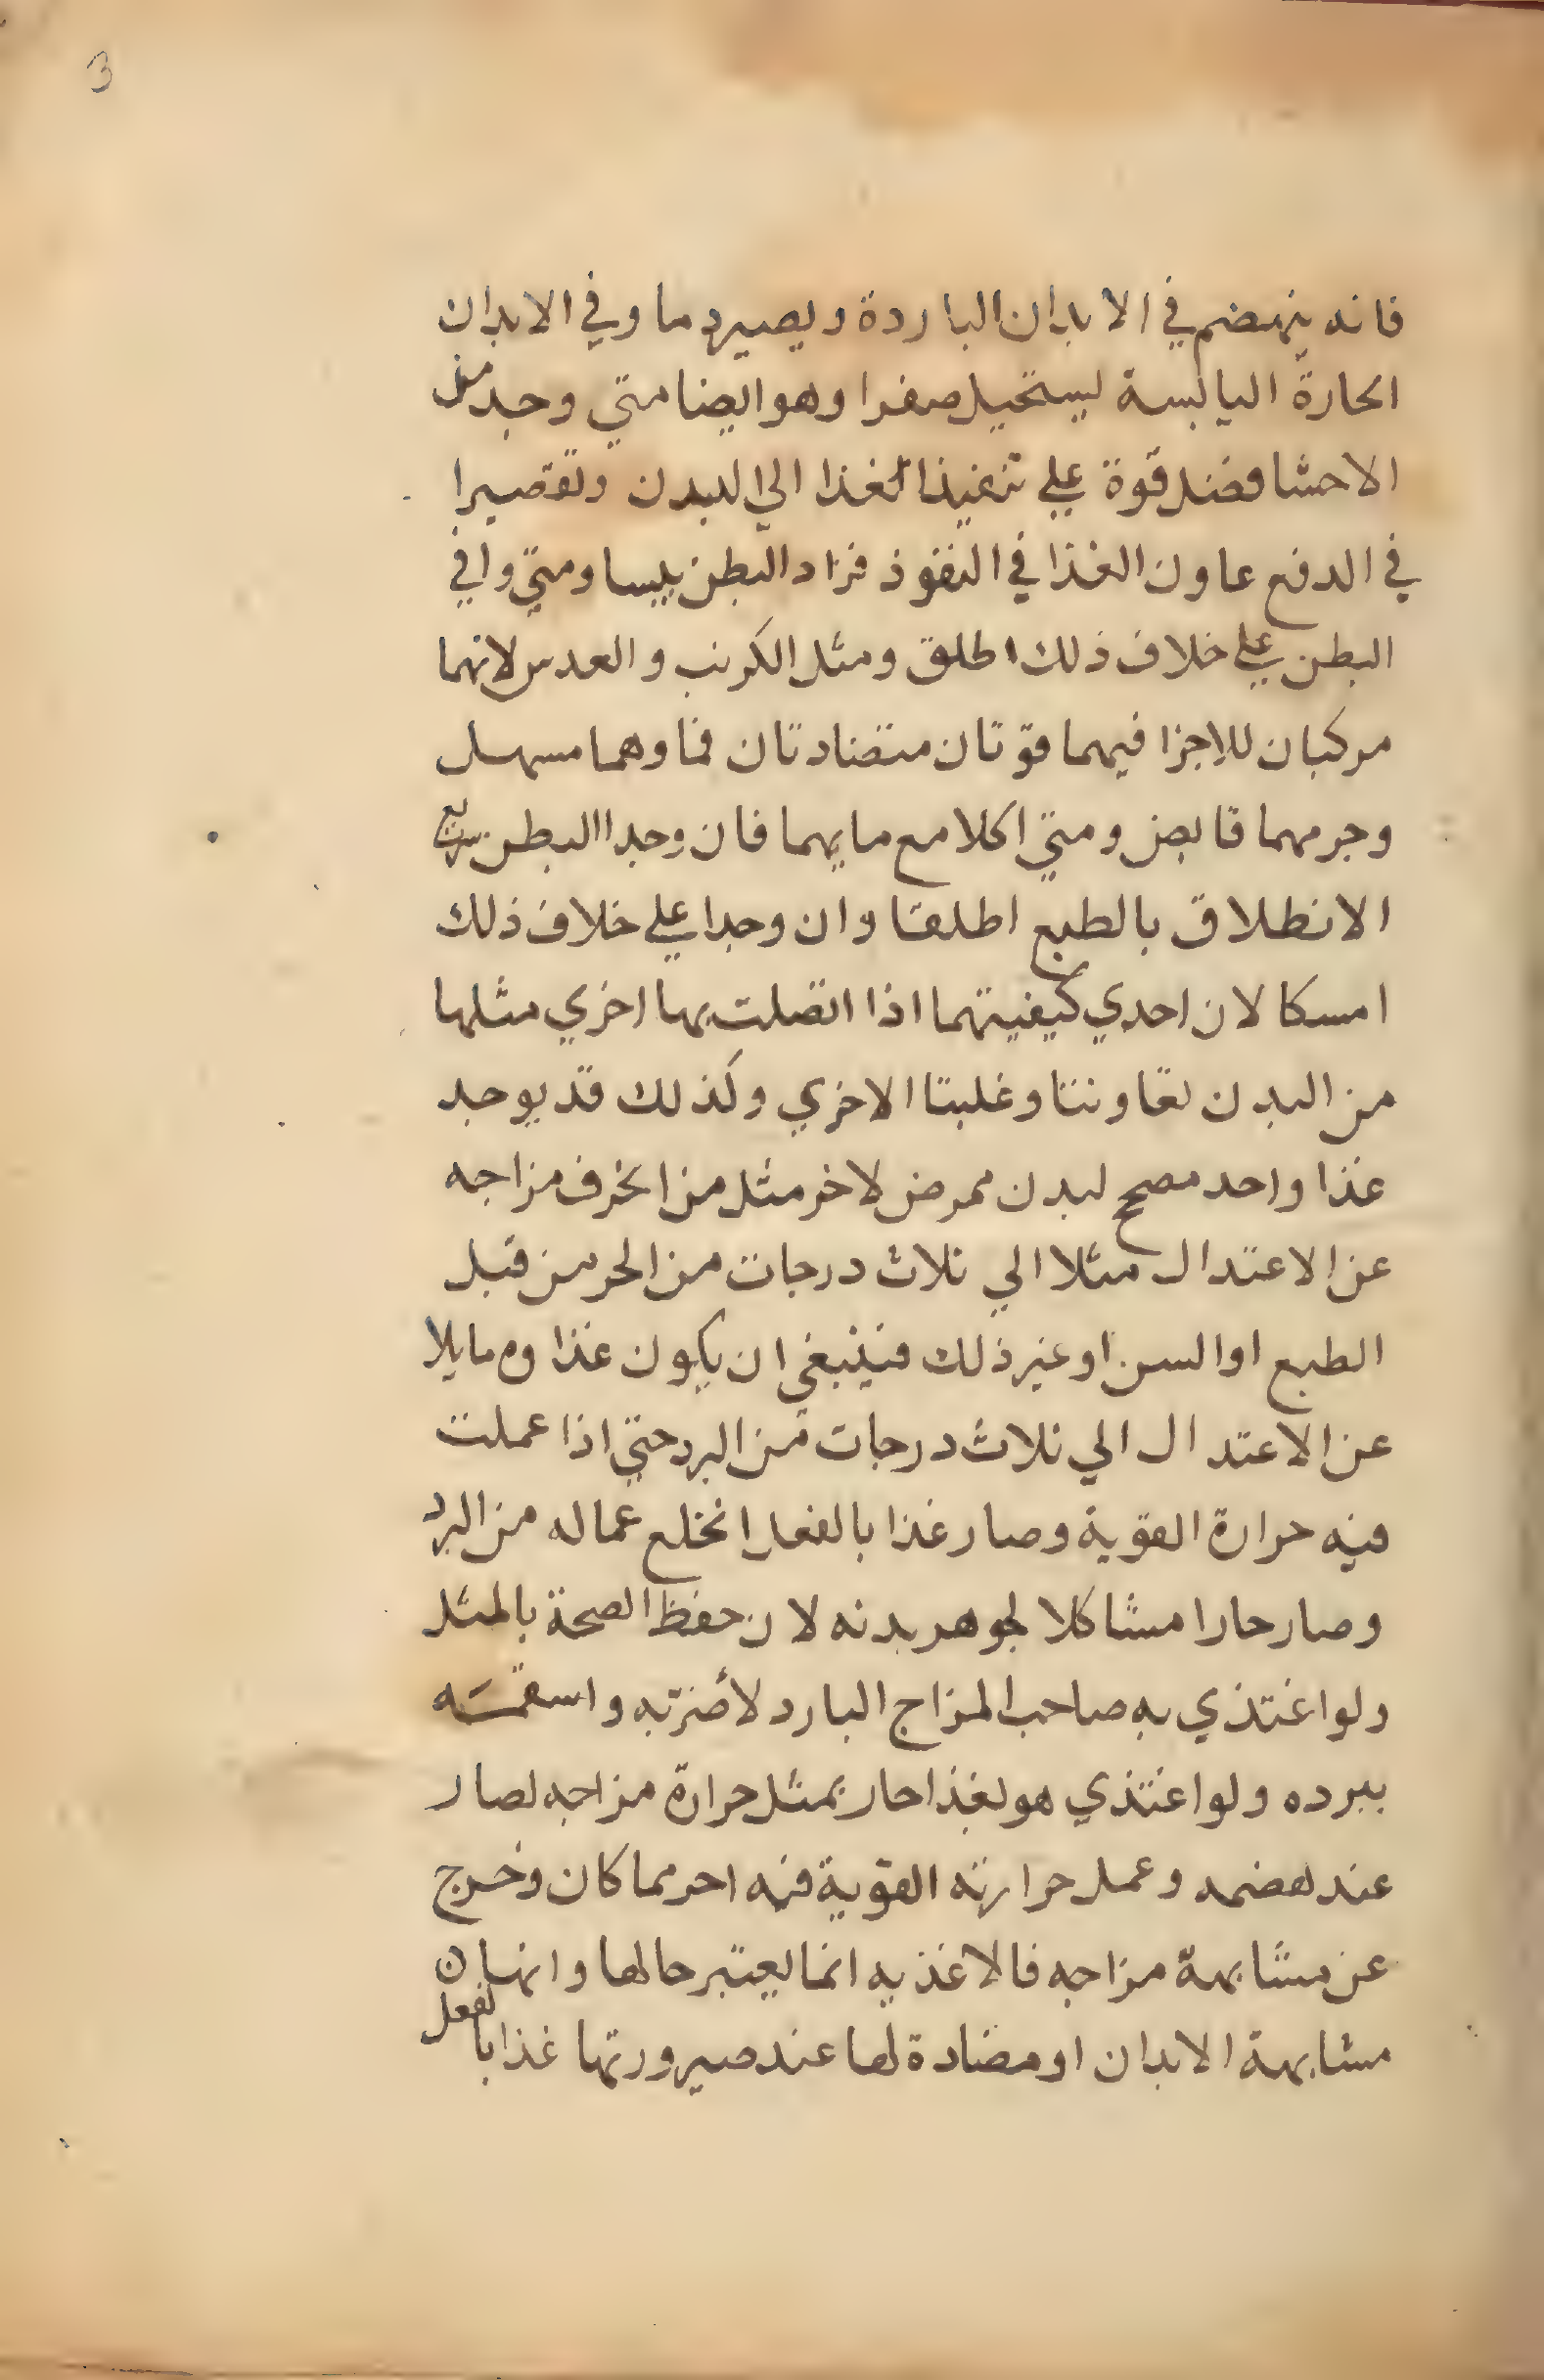 3
فانه ينهضم في الابدان الباردة ويصير دما وفي الابدان
الحارة اليابسة يستحيل صفرا وهو ايضا متي وجد من
الاحشا فضل قوة علي تنفيذ الغذا الي البدن وتقصيرا
في الدفع عاون الغذا في النفوذ فزاد البطن يبسا ومتي وافي
البطن علي خلاف ذلك اطلق ومثل الكرنب والعدس لانهما
مركبان للاجزا فيهما قوتان متضادتان فماوهما مسهل
وجرمهما قابض ومتي اكلا مع مايهما فان وجدا البطن سريع
الانطلاق بالطبع اطلقا وان وجدا علي خلاف ذلك
امسكا لان احدي كيفيتهما اذا اتصلت بها اخري مثلها
من البدن تعاونتا وغلبتا الاخري وكذلك قد يوجد
غذا واحد مصح لبدن ممرض لاخر مثل من انحرف مزاجه
عن الاعتدال مثلا الي ثلاث درجات من الحر من قبل
الطبع او السن او غير ذلك فينبغي ان يكون غذاوه مايلا
عن الاعتدال الي ثلاث درجات من البرد حتي اذا عملت
فيه حرارة القوية وصار غذا بالفعل انخلع عماله من البرد
وصار حارا مشاكلا لجوهر بدنه لان حفظ الصحة بالمثل
ولو اغتذي به صاحب المزاج البارد لأضرته واسقمته
ببرده ولو اغتذي هو بغذا حار بمثل حرارة مزاجه لصار
عند هضمه وعمل حرارته القوية فيه احر مما كان وخرج
عن مشابهة مزاجه فالاغذيه انما يعتبر حالها وانها ن
مشابهة الابدان او مضادة لها عند صيرورتها غذا بالفعل